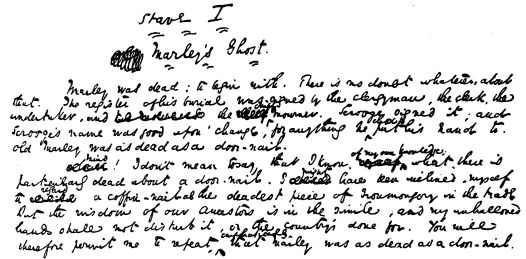 Stave I
Marley's Ghost.
Marley was dead: to begin with. There is no doubt whatever, about
that. The register of his burial was signed by the clergyman, the clerk, the
undertaker, and the chief mourner. Scrooge signed it; and
Scrooge's name was good upon 'Change, for anything he put his hand to.
Old Marley was as dead as a door-nail.
Mind! I don't mean to say, that I know, of my own knowledge, what there is
particularly dead about a door-nail. I might have been inclined, myself
to regard a coffin-nail as the deadest piece of ironmongery in the trade
But the wisdom of our ancestors is in the simile; and my unhallowed
hands shall not disturb it, or the country's done for. You will
therefore permit me to repeat, emphatically, that Marley was as dead as a door-nail.